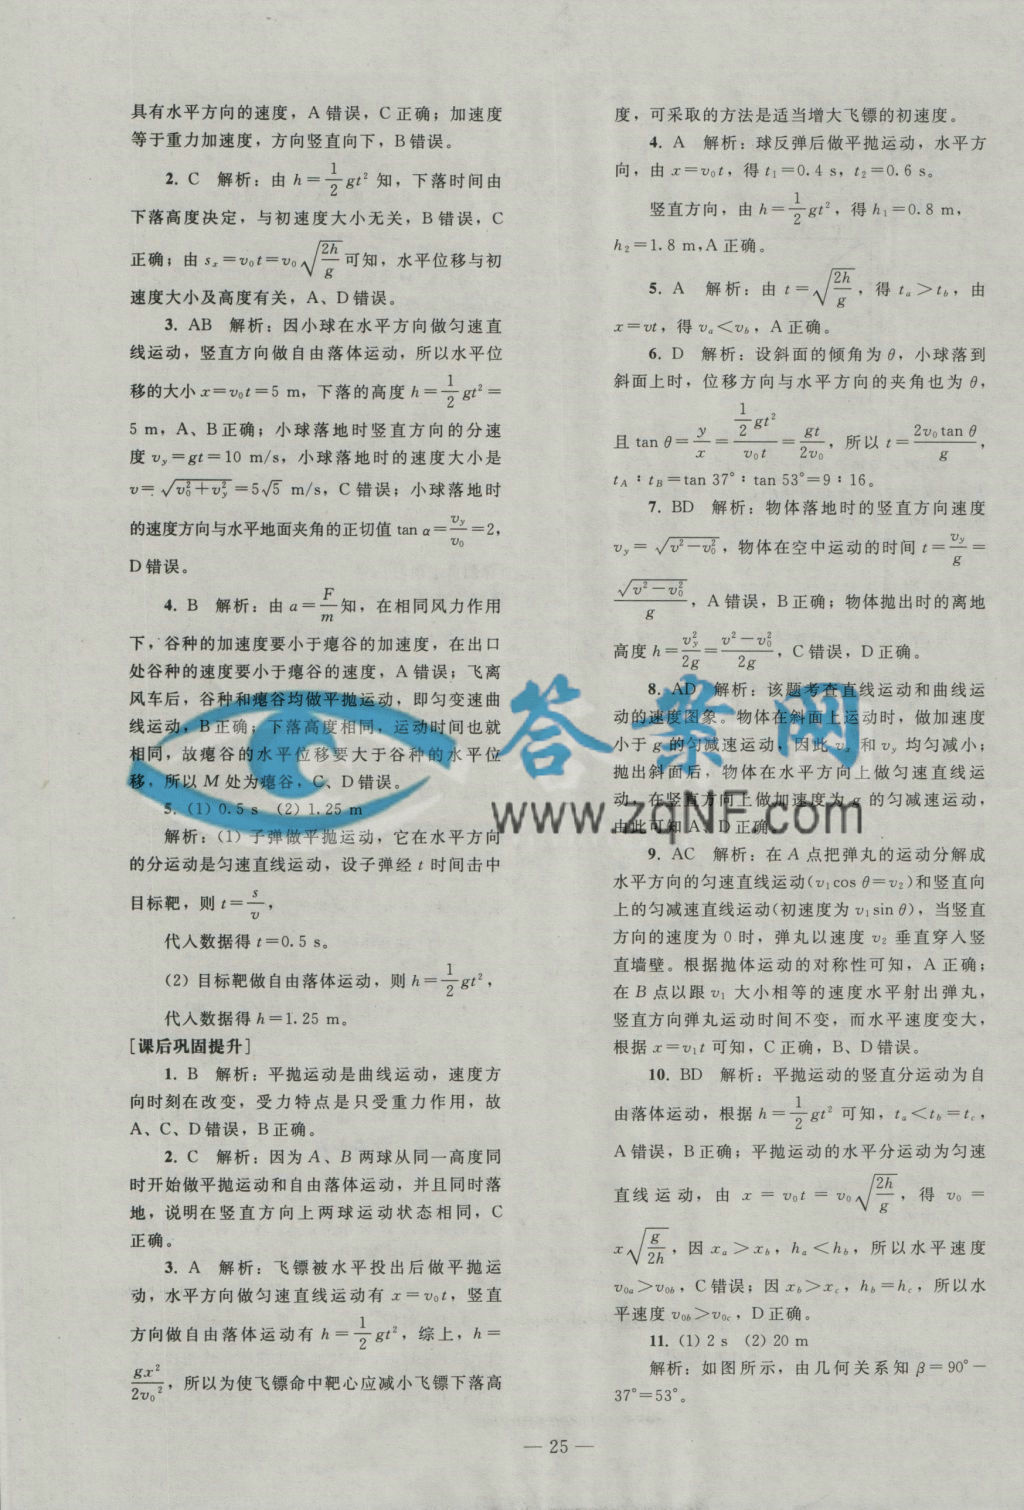 具有水平方向的速度，A错误，C正确；加速度
等于重力加速度，方向竖直向下，B错误。
2. C 解析：由 h=1/2 gt² 知，下落时间由
下落高度决定，与初速度大小无关，B错误，C
正确；由 sₓ=v₀t=v₀√(2h/g) 可知，水平位移与初
速度大小及高度有关，A、D错误。
3. AB 解析：因小球在水平方向做匀速直
线运动，竖直方向做自由落体运动，所以水平位
移的大小 x=v₀t=5 m，下落的高度 h=1/2 gt²=
5 m，A、B正确；小球落地时竖直方向的分速
度 v_y=gt=10 m/s，小球落地时的速度大小是
v=√(v₀²+v_y²)=5√5 m/s，C错误；小球落地时
的速度方向与水平地面夹角的正切值 tan α=v_y/v₀=2，
D错误。
4. B 解析：由 a=F/m 知，在相同风力作用
下，谷种的加速度要小于瘪谷的加速度，在出口
处谷种的速度要小于瘪谷的速度，A错误；飞离
风车后，谷种和瘪谷均做平抛运动，即匀变速曲
线运动，B正确；下落高度相同，运动时间也就
相同，故瘪谷的水平位移要大于谷种的水平位
移，所以 M 处为瘪谷，C、D错误。
5. (1) 0.5 s (2) 1.25 m
解析：(1) 子弹做平抛运动，它在水平方向
的分运动是匀速直线运动，设子弹经 t 时间击中
目标靶，则 t=s/v，
代入数据得 t=0.5 s。
(2) 目标靶做自由落体运动，则 h=1/2 gt²，
代入数据得 h=1.25 m。
[课后巩固提升]
1. B 解析：平抛运动是曲线运动，速度方
向时刻在改变，受力特点是只受重力作用，故
A、C、D错误，B正确。
2. C 解析：因为 A、B 两球从同一高度同
时开始做平抛运动和自由落体运动，并且同时落
地，说明在竖直方向上两球运动状态相同，C
正确。
3. A 解析：飞镖被水平投出后做平抛运
动，水平方向做匀速直线运动有 x=v₀t，竖直
方向做自由落体运动有 h=1/2 gt²，综上，h=
gx²/2v₀²，所以为使飞镖命中靶心应减小飞镖下落高
度，可采取的方法是适当增大飞镖的初速度。
4. A 解析：球反弹后做平抛运动，水平方
向，由 x=v₀t，得 t₁=0.4 s，t₂=0.6 s。
竖直方向，由 h=1/2 gt²，得 h₁=0.8 m，
h₂=1.8 m，A正确。
5. A 解析：由 t=√(2h/g)，得 tₐ>t_b，由
x=vt，得 vₐ<v_b，A正确。
6. D 解析：设斜面的倾角为 θ，小球落到
斜面上时，位移方向与水平方向的夹角也为 θ，
且 tan θ=y/x=(1/2 gt²)/(v₀t)=gt/2v₀，所以 t=2v₀tan θ/g，
t_A∶t_B=tan 37°∶tan 53°=9∶16。
7. BD 解析：物体落地时的竖直方向速度
v_y=√(v²-v₀²)，物体在空中运动的时间 t=v_y/g=
√(v²-v₀²)/g，A错误，B正确；物体抛出时的离地
高度 h=v_y²/2g=(v²-v₀²)/2g，C错误，D正确。
8. AD 解析：该题考查直线运动和曲线运
动的速度图象。物体在斜面上运动时，做加速度
小于 g 的匀减速运动，因此 vₓ 和 v_y 均匀减小；
抛出斜面后，物体在水平方向上做匀速直线运
动，在竖直方向上做加速度为 g 的匀减速运动，
由此可知 A、D正确。
9. AC 解析：在 A 点把弹丸的运动分解成
水平方向的匀速直线运动(v₁cos θ=v₂)和竖直向
上的匀减速直线运动(初速度为 v₁sin θ)，当竖直
方向的速度为 0 时，弹丸以速度 v₂ 垂直穿入竖
直墙壁。根据抛体运动的对称性可知，A 正确；
在 B 点以跟 v₁ 大小相等的速度水平射出弹丸，
竖直方向弹丸运动时间不变，而水平速度变大，
根据 x=v₁t 可知，C正确，B、D错误。
10. BD 解析：平抛运动的竖直分运动为自
由落体运动，根据 h=1/2 gt² 可知，tₐ<t_b=t_c，
A错误，B正确；平抛运动的水平分运动为匀速
直线运动，由 x=v₀t=v₀√(2h/g)，得 v₀=
x√(g/2h)，因 xₐ>x_b，hₐ<h_b，所以水平速度
v₀ₐ>v₀b，C错误；因 x_b>x_c，h_b=h_c，所以水
平速度 v₀b>v₀c，D正确。
11. (1) 2 s (2) 20 m
解析：如图所示，由几何关系知 β=90°－
37°=53°。
答案网
www.zqNF.com
— 25 —